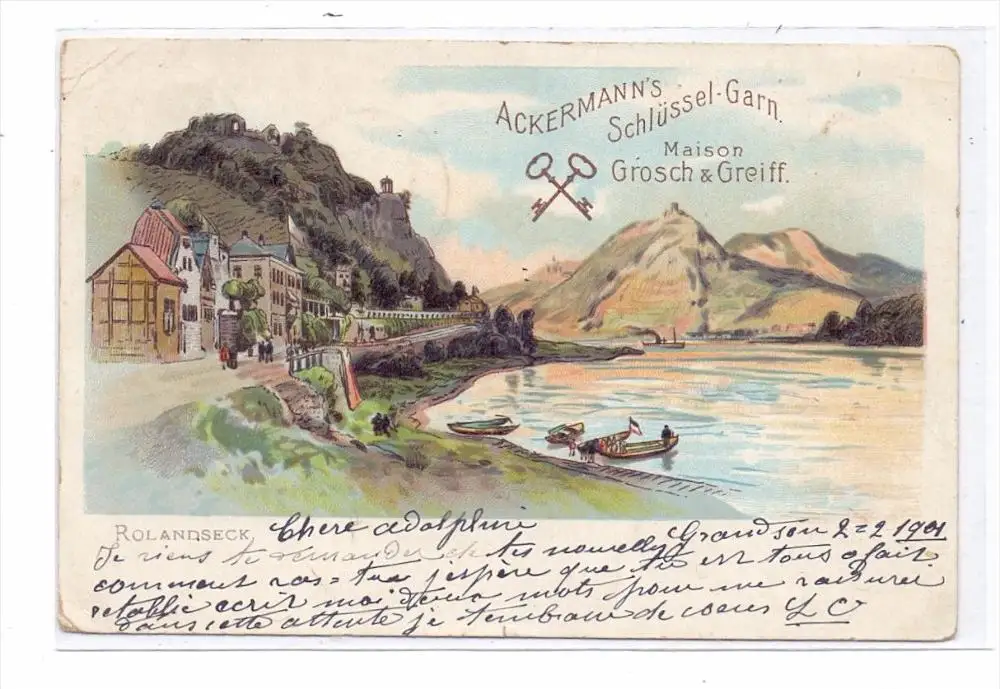 ACKERMANN'S
Schlüssel-Garn.
Maison
Grosch & Greiff.
ROLANDSECK
Chere adolphine
Grandson 2=2 1901
Je viens te demander de tes nouvelles
comment vas=tua j'espère que tu est tous a fait
retablie ecrit moi deux mots pour me rassurer
dans cette attente je tembrasse de coeur L C